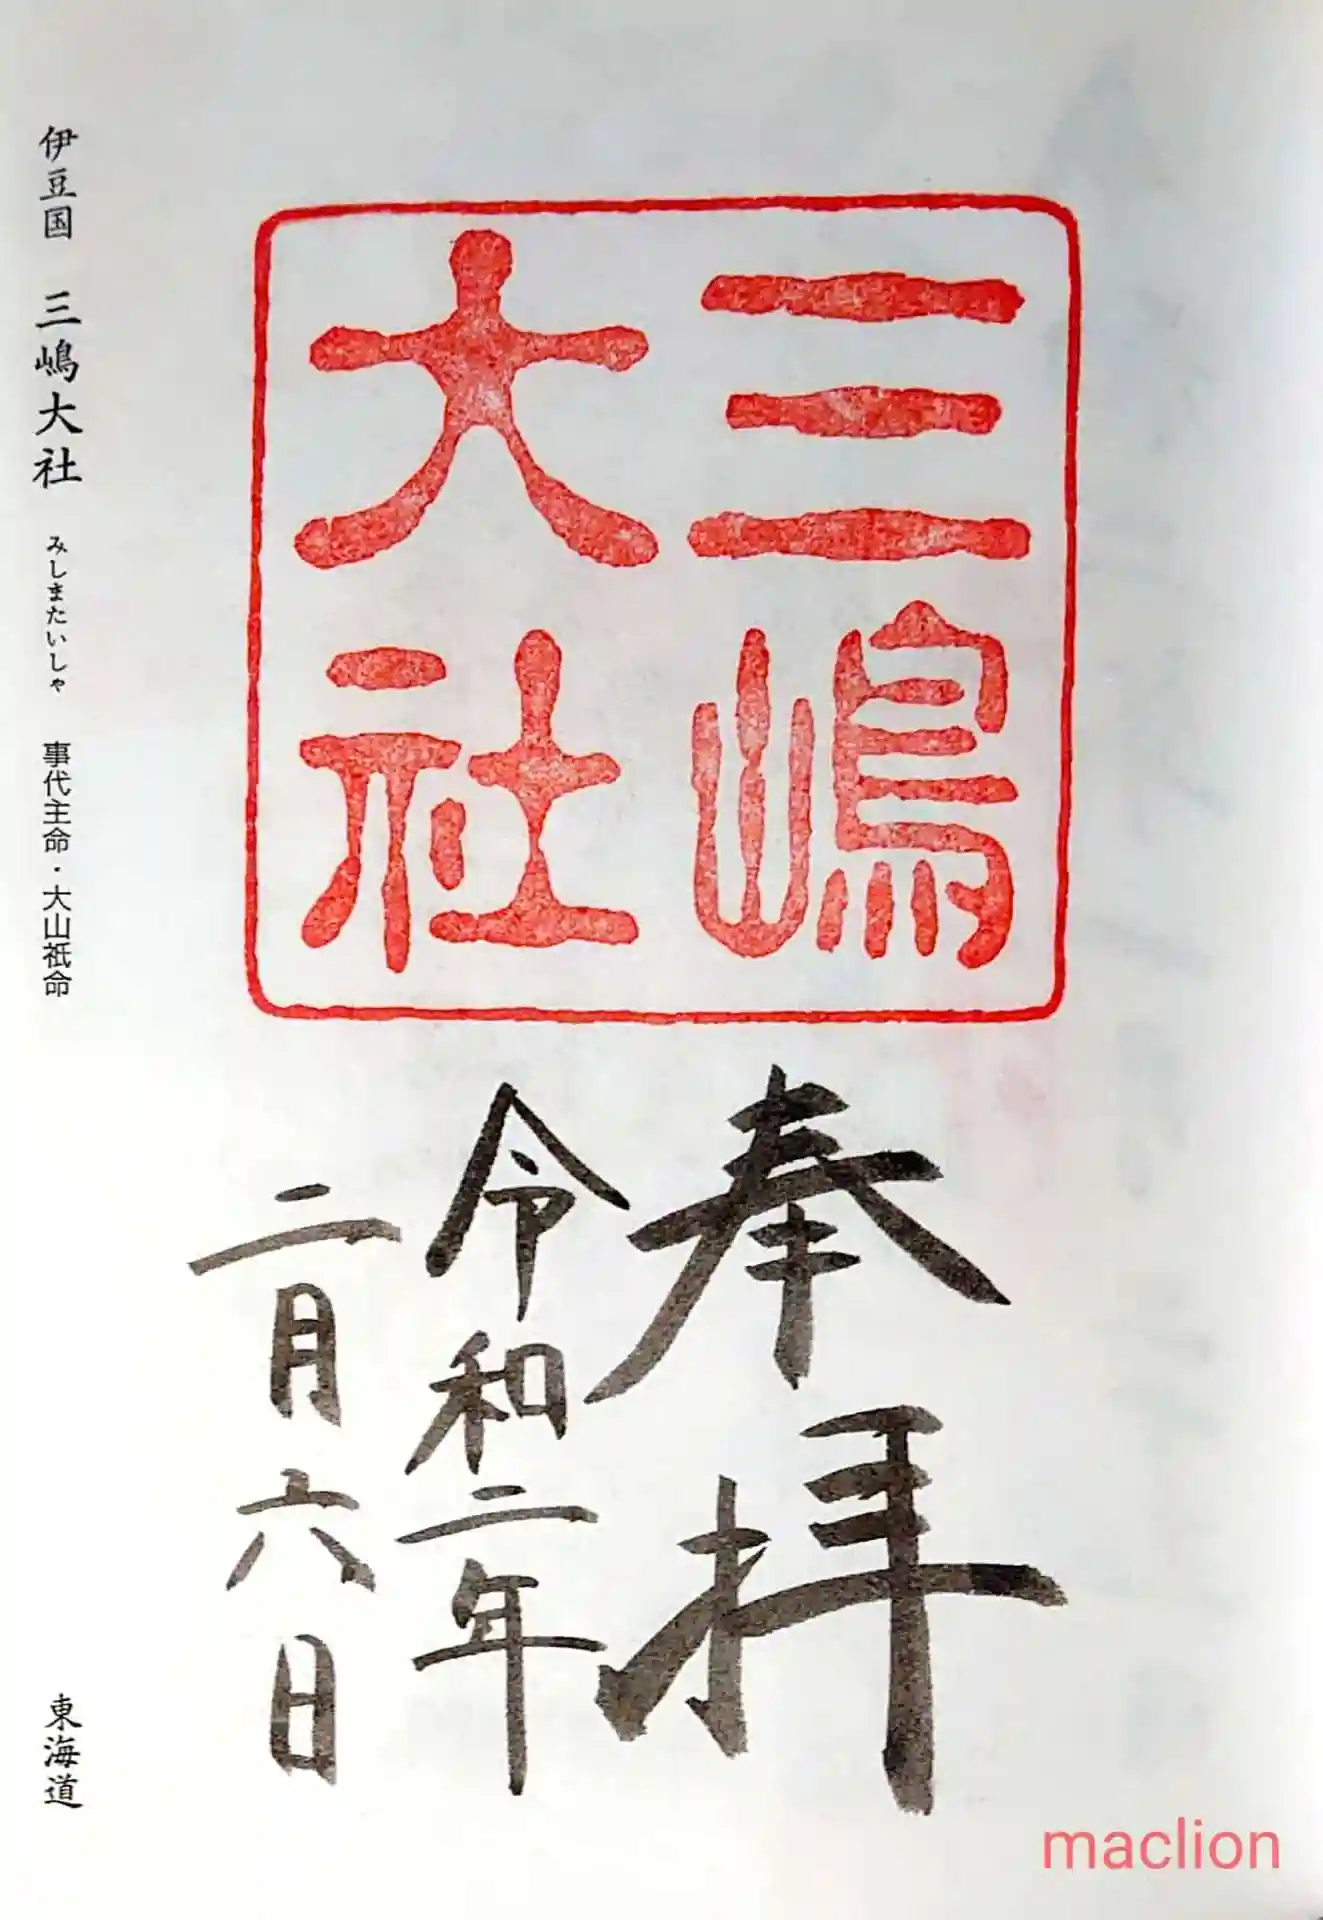 三嶋
大社
奉拝
令和二年
二月六日
伊豆国 三嶋大社 みしまたいしゃ 事代主命・大山祇命 東海道
maclion